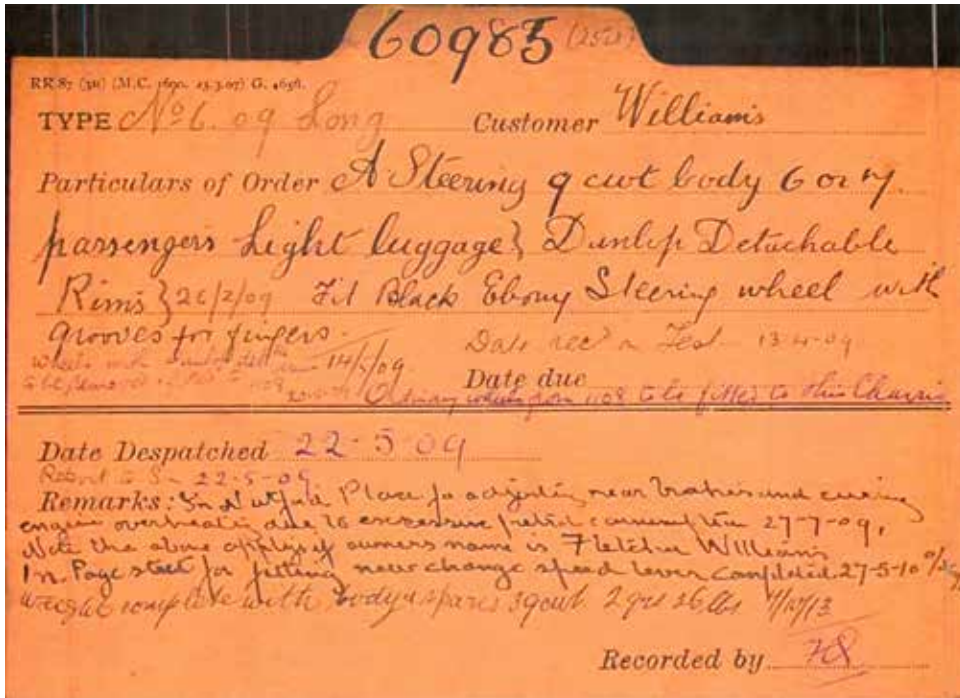 60985 (2528)
RR 87 (3H) (M.C. 1690. 25.3.07) G. 4656.
TYPE No 6. 09 Long Customer Williams
Particulars of Order A Steering 9 cwt body 6 or 7.
passengers Light luggage } Dunlop Detachable
Rims } 26/2/09 Fit Black Ebony Steering wheel with
grooves for fingers.
Date rec'd on Test 13-4-09
wheels with 14/5/09
to be removed 1108 Date due
Ordinary wheels from 1108 to be fitted to this Chassis
Date Despatched 22-5-09
Report to S 22-5-09
Remarks: In Nutford Place for adjusting rear brakes and curing
engine overheating due to excessive petrol consumption 27-7-09.
Note the above applys if owners name is Fletcher Williams
In Page street for fitting new change speed lever completed 27-5-10
Weight complete with body & spares 39 cwt 2 qrs 26 lbs 4/12/13
Recorded by